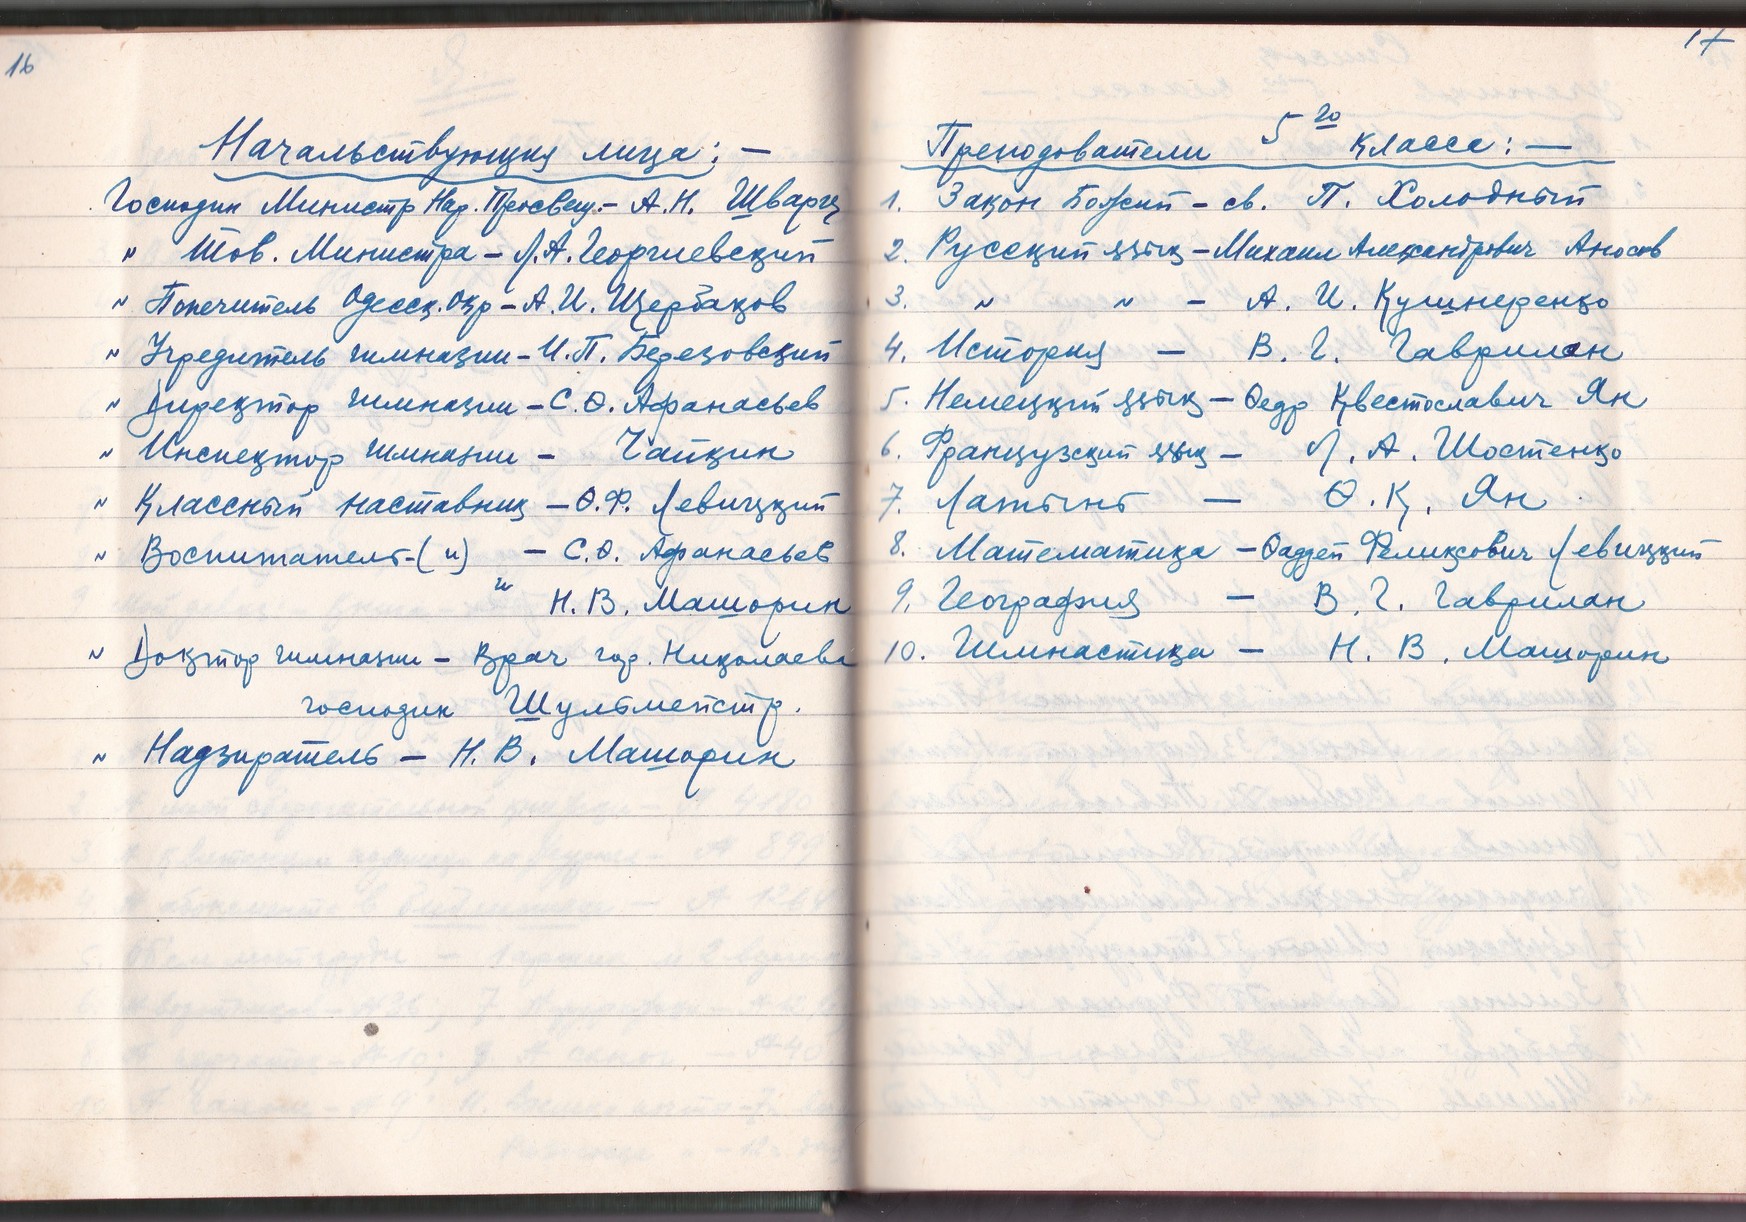 16
Начальствующия лица: —
Господин Министр Нар. Просвещ. - А.Н. Шварц
" Тов. Министра - Л.А. Георгиевский
" Попечитель Одесск. Окр - А.И. Щербаков
" Учредитель гимназии - И.П. Березовский
" Директор гимназии - С.Ѳ. Афанасьев
" Инспектор гимназии - Чайкин
" Классный наставник - Ѳ.Ф. Левицкий
" Воспитатель-(и) - С.Ѳ. Афанасьев
" Н.В. Машорин
" Доктор гимназии - Врач гор. Николаева
господин Шульмейстр.
" Надзиратель - Н.В. Машорин
17
Преподователи 5го класса: —
1. Закон Божий - св. П. Холодный
2. Русский язык - Михаил Александрович Аносов
3. " " - А. И. Кушнеренко
4. История - В. Г. Гаврилан
5. Немецкий язык - Ѳедр Квестославич Ян
6. Французский язык - Л. А. Шостенко
7. Латынь - Ѳ.К. Ян
8. Математика - Ѳаддей Феликсович Левицкий
9. География - В. Г. Гаврилан
10. Гимнастика - Н. В. Машорин